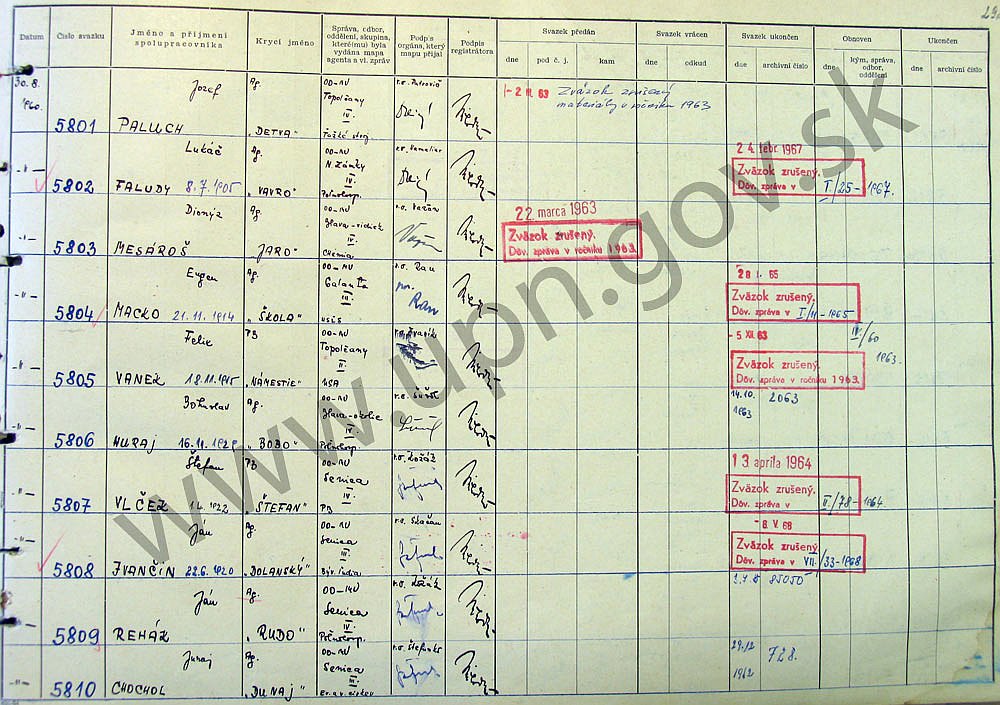 Datum
Číslo svazku
Jméno a příjmení spolupracovníka
Krycí jméno
Správa, odbor, oddělení, skupina, které(mu) byla vydána mapa agenta a vl. zpráv
Podpis orgána, který mapu přijal
Podpis registrátora
Svazek předán
dne
pod č. j.
kam
Svazek vrácen
dne
odkud
Svazek ukončen
dne
archivní číslo
Obnoven
dne
kým, správa, odbor, oddělení
Ukončen
dne
archivní číslo
30. 8. 1960.
5801
Jozef
PALUCH
Ag.
"DETVA"
OO-MV
Topolčany
IV.
- 2 III. 63
Zväzok zrušený
materiály v ročníku 1963
5802
Lukáč
FALUDY 8.7.1905
Ag.
"VAVRO"
OO-MV
N. Zámky
IV.
24. febr. 1967
Zväzok zrušený.
Dôv. zpráva v I/25-1967.
5803
Dionýz
MESÁROŠ
Ag.
"JARO"
OO-MV
IV.
Chémia
22. marca 1963
Zväzok zrušený.
Dôv. zpráva v ročníku 1963.
5804
Eugen
MACKO 21.11.1914
Ag.
"ŠKOLA"
OO-MV
Galanta
III.
r.o. Rau
28 I. 65
Zväzok zrušený.
Dôv. zpráva v I/11-1965
5805
Felix
VANEK 18.11.1915
PB
"NÁMESTIE"
OO-MV
Topolčany
II.
NSA
- 5 XII. 63
IV/60
1963.
Zväzok zrušený.
Dôv. zpráva v ročníku 1963.
5806
Bohuslav
MURAJ 16.11.1929
Ag.
"BOBO"
OO-MV
Hlava-okolie
IV.
14.10.
1963
2063
5807
Štefan
VLČEK 1.4.1922
PB
"ŠTEFAN"
OO-MV
Senica
IV.
PB
r.o. Ložák
13 apríla 1964
Zväzok zrušený.
Dôv. zpráva v II/78-1964
5808
Ján
IVANČIN 22.6.1920
Ag.
"DOLANSKÝ"
OO-MV
Senica
III.
- 8. V. 68
Zväzok zrušený.
Dôv. zpráva v VII./33-1968
5809
Ján
REHÁK
Ag.
"RUDO"
OO-MV
Senica
IV.
r.o. Ložák
85050
5810
Juraj
CHOCHOL
Ag.
"DUNAJ"
OO-MV
Senica
III.
29.12
1962
728.
www.upn.gov.sk